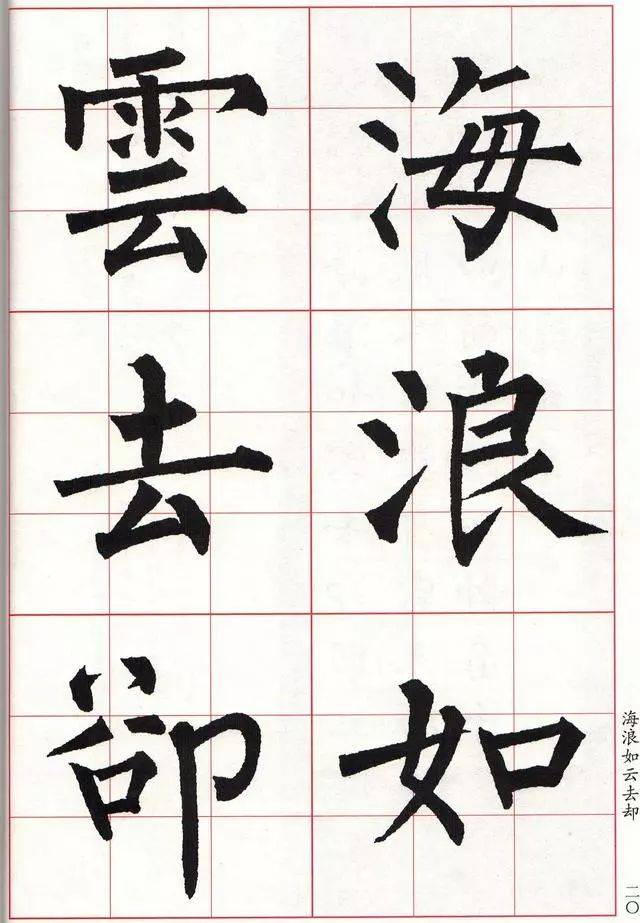 海浪如
雲去卻
海浪如云去却
二〇